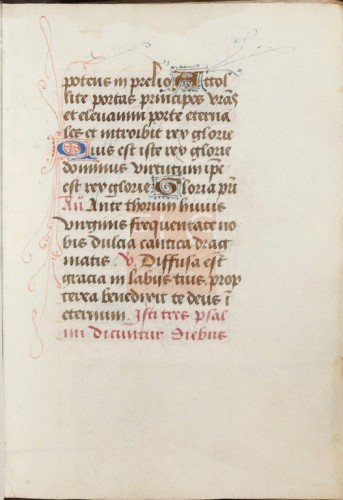 potens in prelio Attol
lite portas principes vr̄as
et elevamini porte eterna
les et introibit rex glorie
Quis est iste rex glorie
dominus virtutum ip̄e
est rex glorie Gloria pr̄i
An̄ Ante thorum huius
virginis frequentate no
bis dulcia cantica drag
matis. V. Diffusa est
gracia in labiis tuis. prop
terea benedixit te deus ī
eternum. Isti tres psal
mi dicuntur diebus